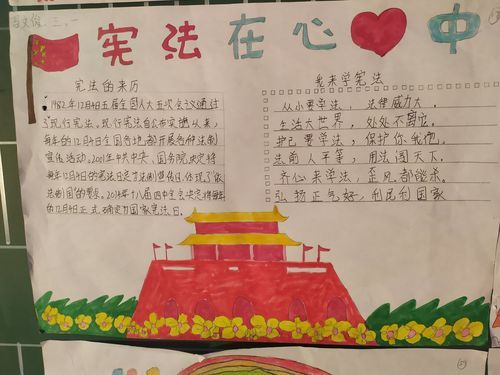 宪法在心中
三.一
宪法的来历
1982年12月4日五届全国人大五次会议通过
了现行宪法。现行宪法自公布实施以来,
每年的12月4日全国各地都开展各种法制
宣传活动。2001年中共中央、国务院决定将
每年12月4日的宪法日定为法制宣传日,体现了依
法制国的要求。2014年十八届四中全会决定将每年
的12月4日正式确定为国家宪法日。
我来学宪法
从小要学法,法律威力大,
生活大世界,处处不离它。
护己要学法,保护你我他。
法前人平等,用法闯天下。
齐心来学法,歪风都能杀。
弘扬正气好,利民利国家